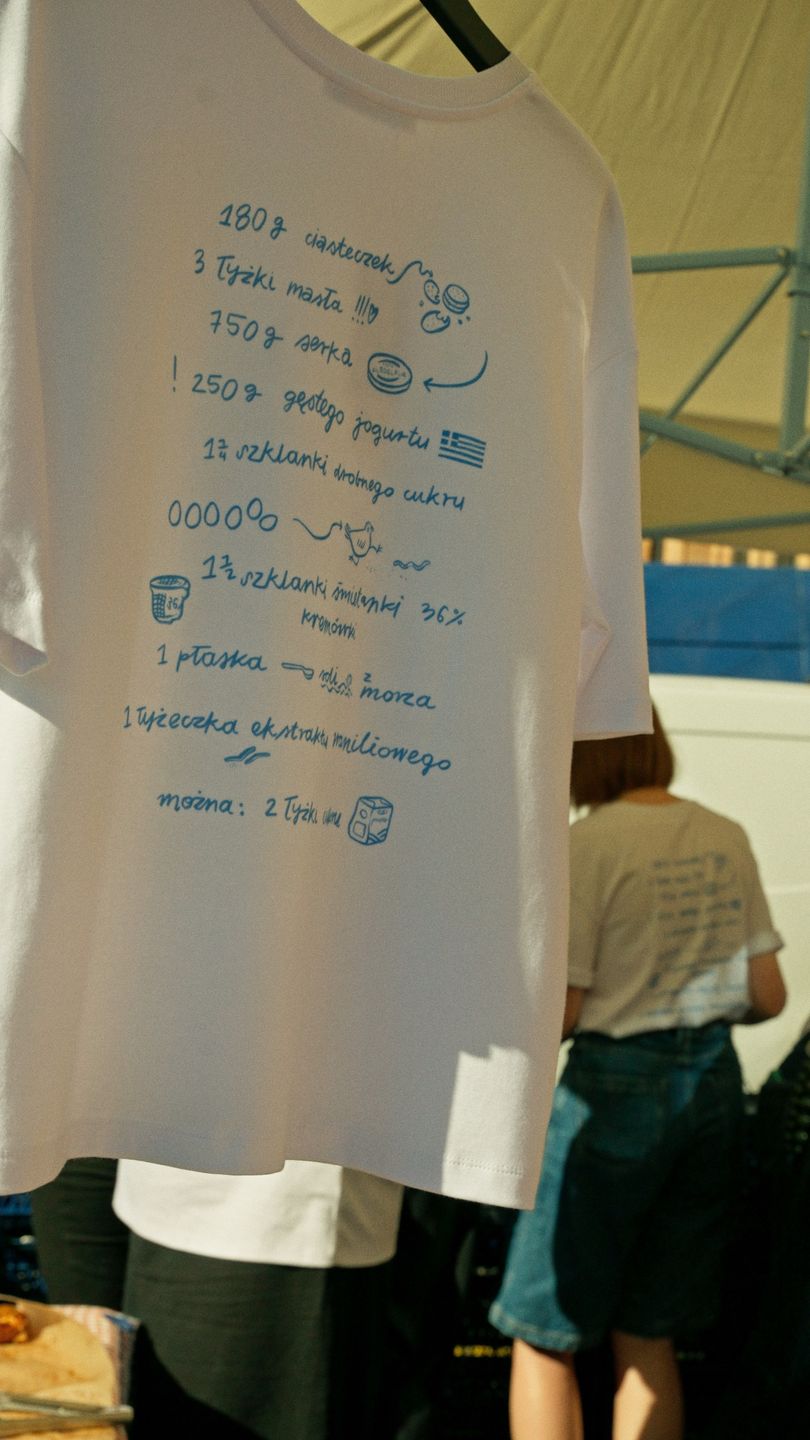 180 g ciasteczek
3 łyżki masła !!!
750 g serka
! 250 g gęstego jogurtu
1 szklanki drobnego cukru
000000
1 1/2 szklanki śmietanki 36%
kremówki
36%
1 płaska soli z morza
1 łyżeczka ekstraktu waniliowego
można: 2 łyżki